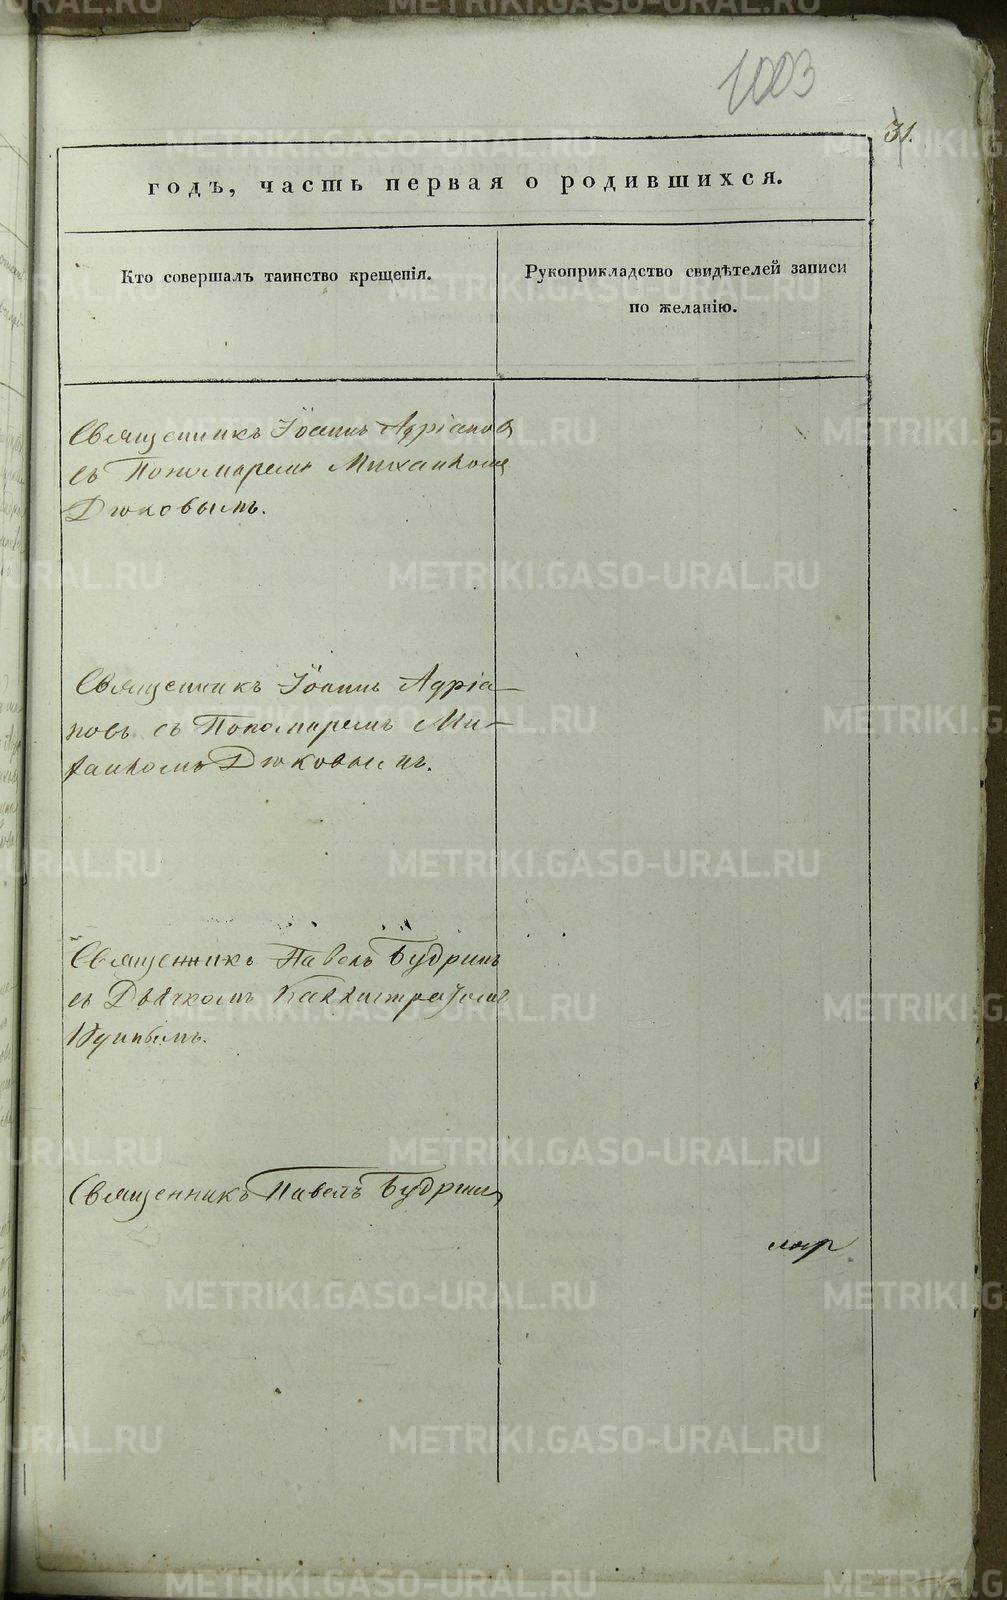 1003
31.
годъ, часть первая о родившихся.
Кто совершалъ таинство крещенія.
Рукоприкладство свидѣтелей записи
по желанію.
Священникъ Іоаннъ Адріановъ
съ Пономаремъ Михаиломъ
Дюковымъ.
Священникъ Іоаннъ Адріа-
новъ съ Пономаремъ Ми-
хаиломъ Дюковымъ.
Священникъ Павелъ Будринъ
съ Дьячкомъ Каллистратомъ
Священникъ Павелъ Будринъ
METRIKI.GASO-URAL.RU